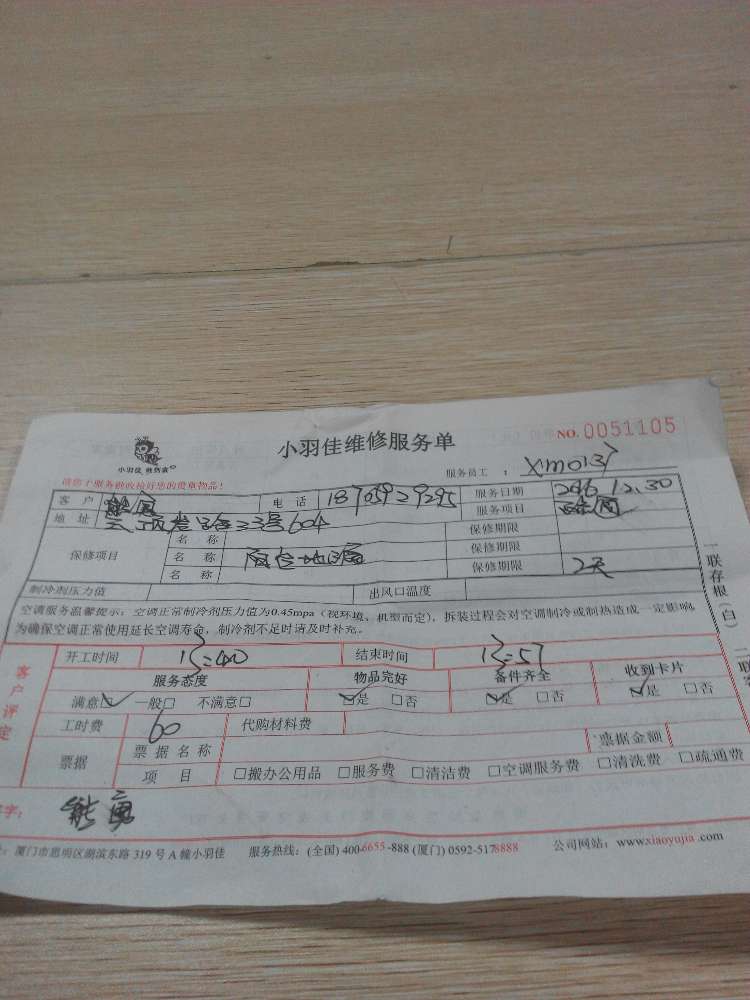 小羽佳维修服务单
NO. 0051105
小羽佳
服务员工 : Xm0137
请您于服务前收检好您的贵重物品!
客 户 电 话 18703929295 服务日期 2016.12.30
地 址 23号604 服务项目
保修项目 名 称 保修期限
名 称 保修期限
名 称 保修期限 2天
制冷剂压力值 出风口温度
空调服务温馨提示:空调正常制冷剂压力值为0.45mpa(视环境、机型而定),拆装过程会对空调制冷或制热造成一定影响
为确保空调正常使用延长空调寿命,制冷剂不足时请及时补充。
一联存根(白)
二联客
客户评定
开工时间 13:40 结束时间 13:57
服务态度 物品完好 备件齐全 收到卡片
满意☑ 一般□ 不满意□ ☑是 □否 ☑是 □否 ☑是 □否
工时费 60 代购材料费
票据 票 据 名 称 票据金额
项 目 □搬办公用品 □服务费 □清洁费 □空调服务费 □清洗费 □疏通费
字: 熊勇
: 厦门市思明区湖滨东路 319 号 A 幢小羽佳 服务热线: (全国) 400-6655-888 (厦门) 0592-5178888 公司网站: www.xiaoyujia.com